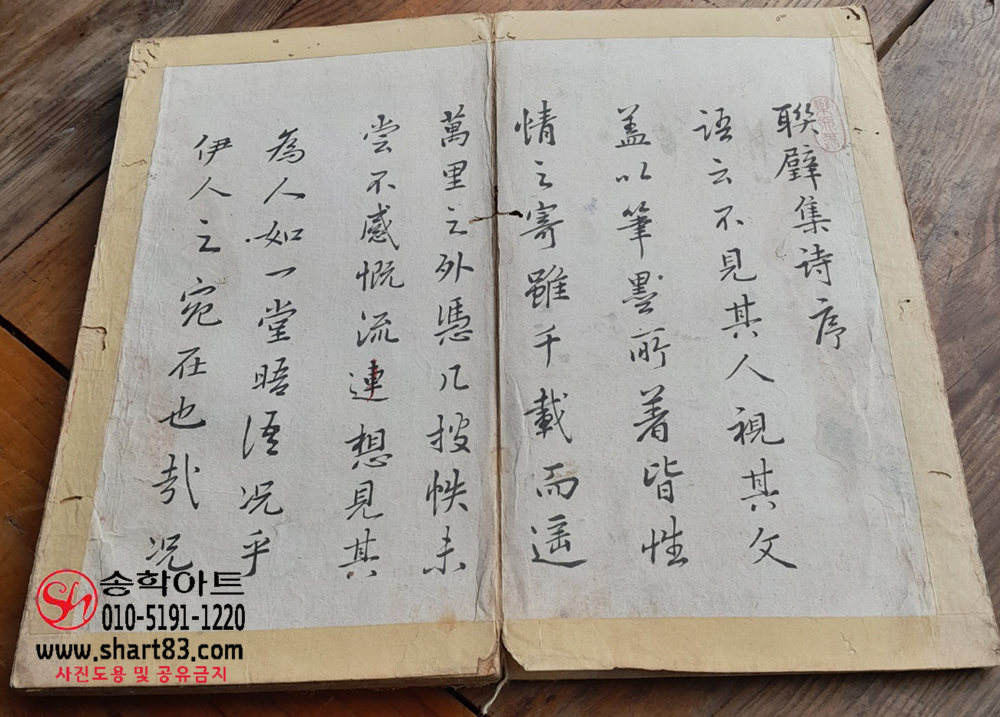 聯壁集詩序
語云不見其人視其文
蓋以筆墨所著皆性
情之寄雖千載而遥
萬里之外憑几披帙未
嘗不感慨流連想見其
為人如一堂晤語况乎
伊人之宛在也哉况
송학아트
010-5191-1220
www.shart83.com
사진도용 및 공유금지